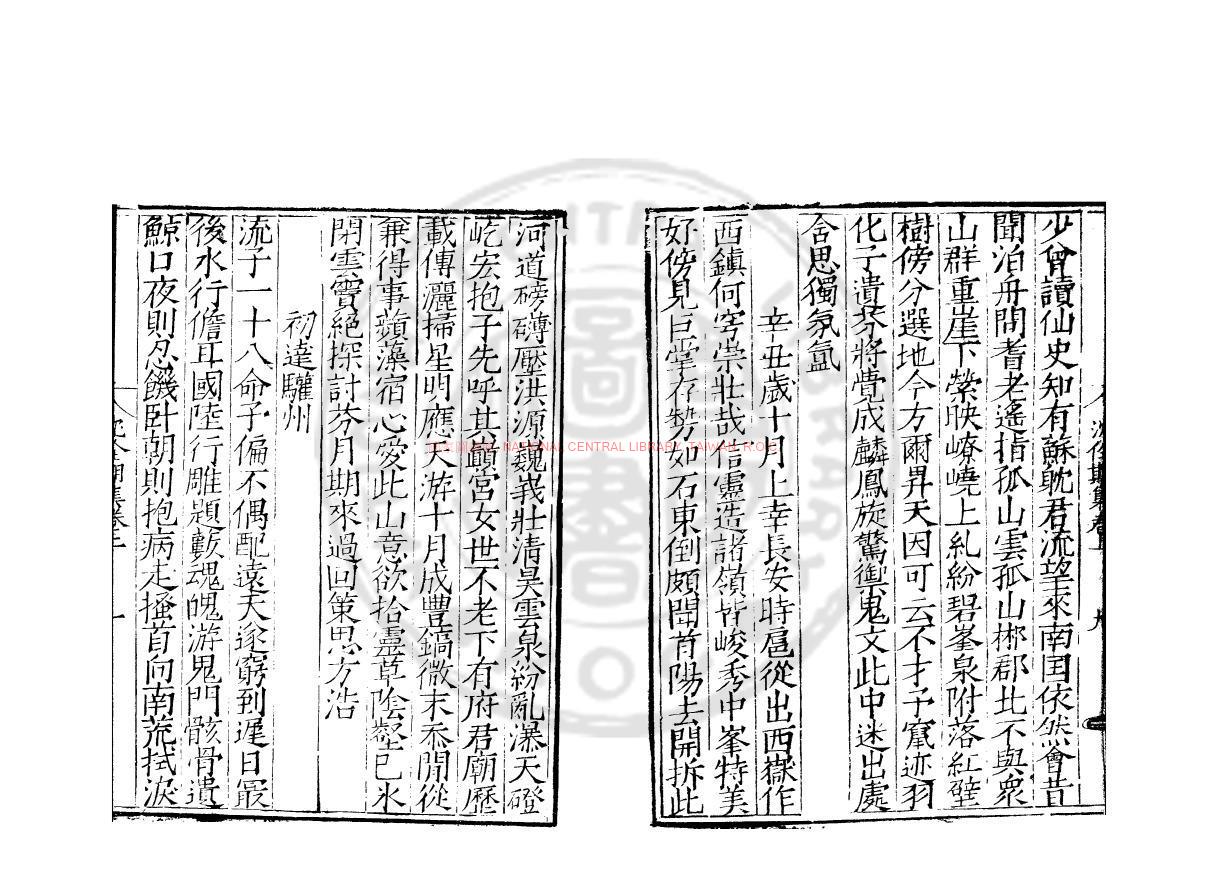 少曾讀仙史知有蘇耽君流望來南国依然會昔
聞泊舟問耆老遙指孤山雲孤山郴郡北不與衆
山群重崖下縈映嶛嶢上糺紛碧峯泉附落紅壁
樹傍分選地今方爾昇天因可云不才予竄迹羽
化子遺芬將覺成麟鳳旋驚御鬼文此中迷出處
含思獨氛氳
辛丑歲十月上幸長安時扈從出西嶽作
西鎮何穹崇壯哉信靈造諸嶺皆峻秀中峯特美
好傍見巨掌存勢如石東倒頗聞首陽去開拆此
河道磅礴壓洪源巍峩壯清昊雲泉紛亂瀑天磴
屹宏抱子先呼其巔宮女世不老下有府君廟歷
載傳灑掃星明應天游十月成豐鎬微末忝閒從
兼得事蘋藻宿心愛此山意欲拾靈草陰壑已氷
閉雲竇絕探討芬月期來過回策思方浩
初達驩州
流子一十八命子偏不偶配遠天遂窮到遲日最
後水行儋耳國陸行雕題藪魂魄游鬼門骸骨遺
鯨口夜則忍饑卧朝則抱病走搔首向南荒拭淚
NATIONAL CENTRAL LIBRARY, TAIWAN, R.O.C